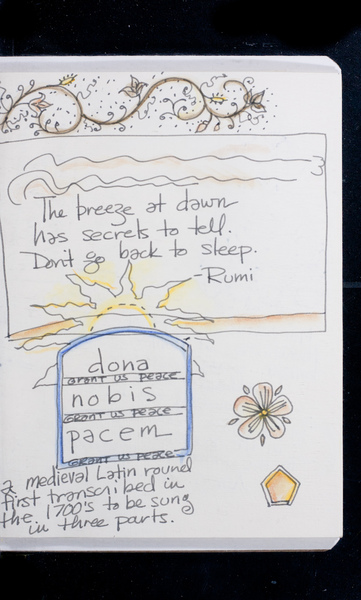 The breeze at dawn
has secrets to tell.
Don't go back to sleep.
-Rumi
dona
GRANT US PEACE
nobis
GRANT US PEACE
pacem
GRANT US PEACE
a medieval Latin round
first transcribed in
the 1700's to be sung
in three parts.